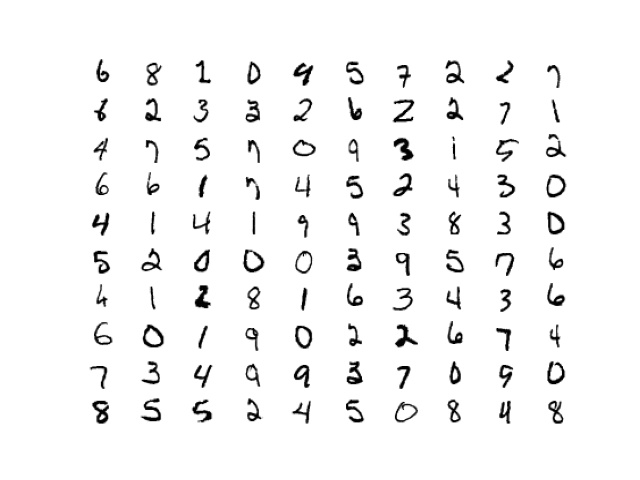 6 8 1 0 9 5 7 2 2 7
8 2 3 3 2 6 2 2 7 1
4 7 5 7 0 9 3 1 5 2
6 6 1 7 4 5 2 4 3 0
4 1 4 1 9 9 3 8 3 0
5 2 0 0 0 3 9 5 7 6
4 1 2 8 1 6 3 4 3 6
6 0 1 9 0 2 2 6 7 4
7 3 4 9 9 3 7 0 9 0
8 5 5 2 4 5 0 8 4 8